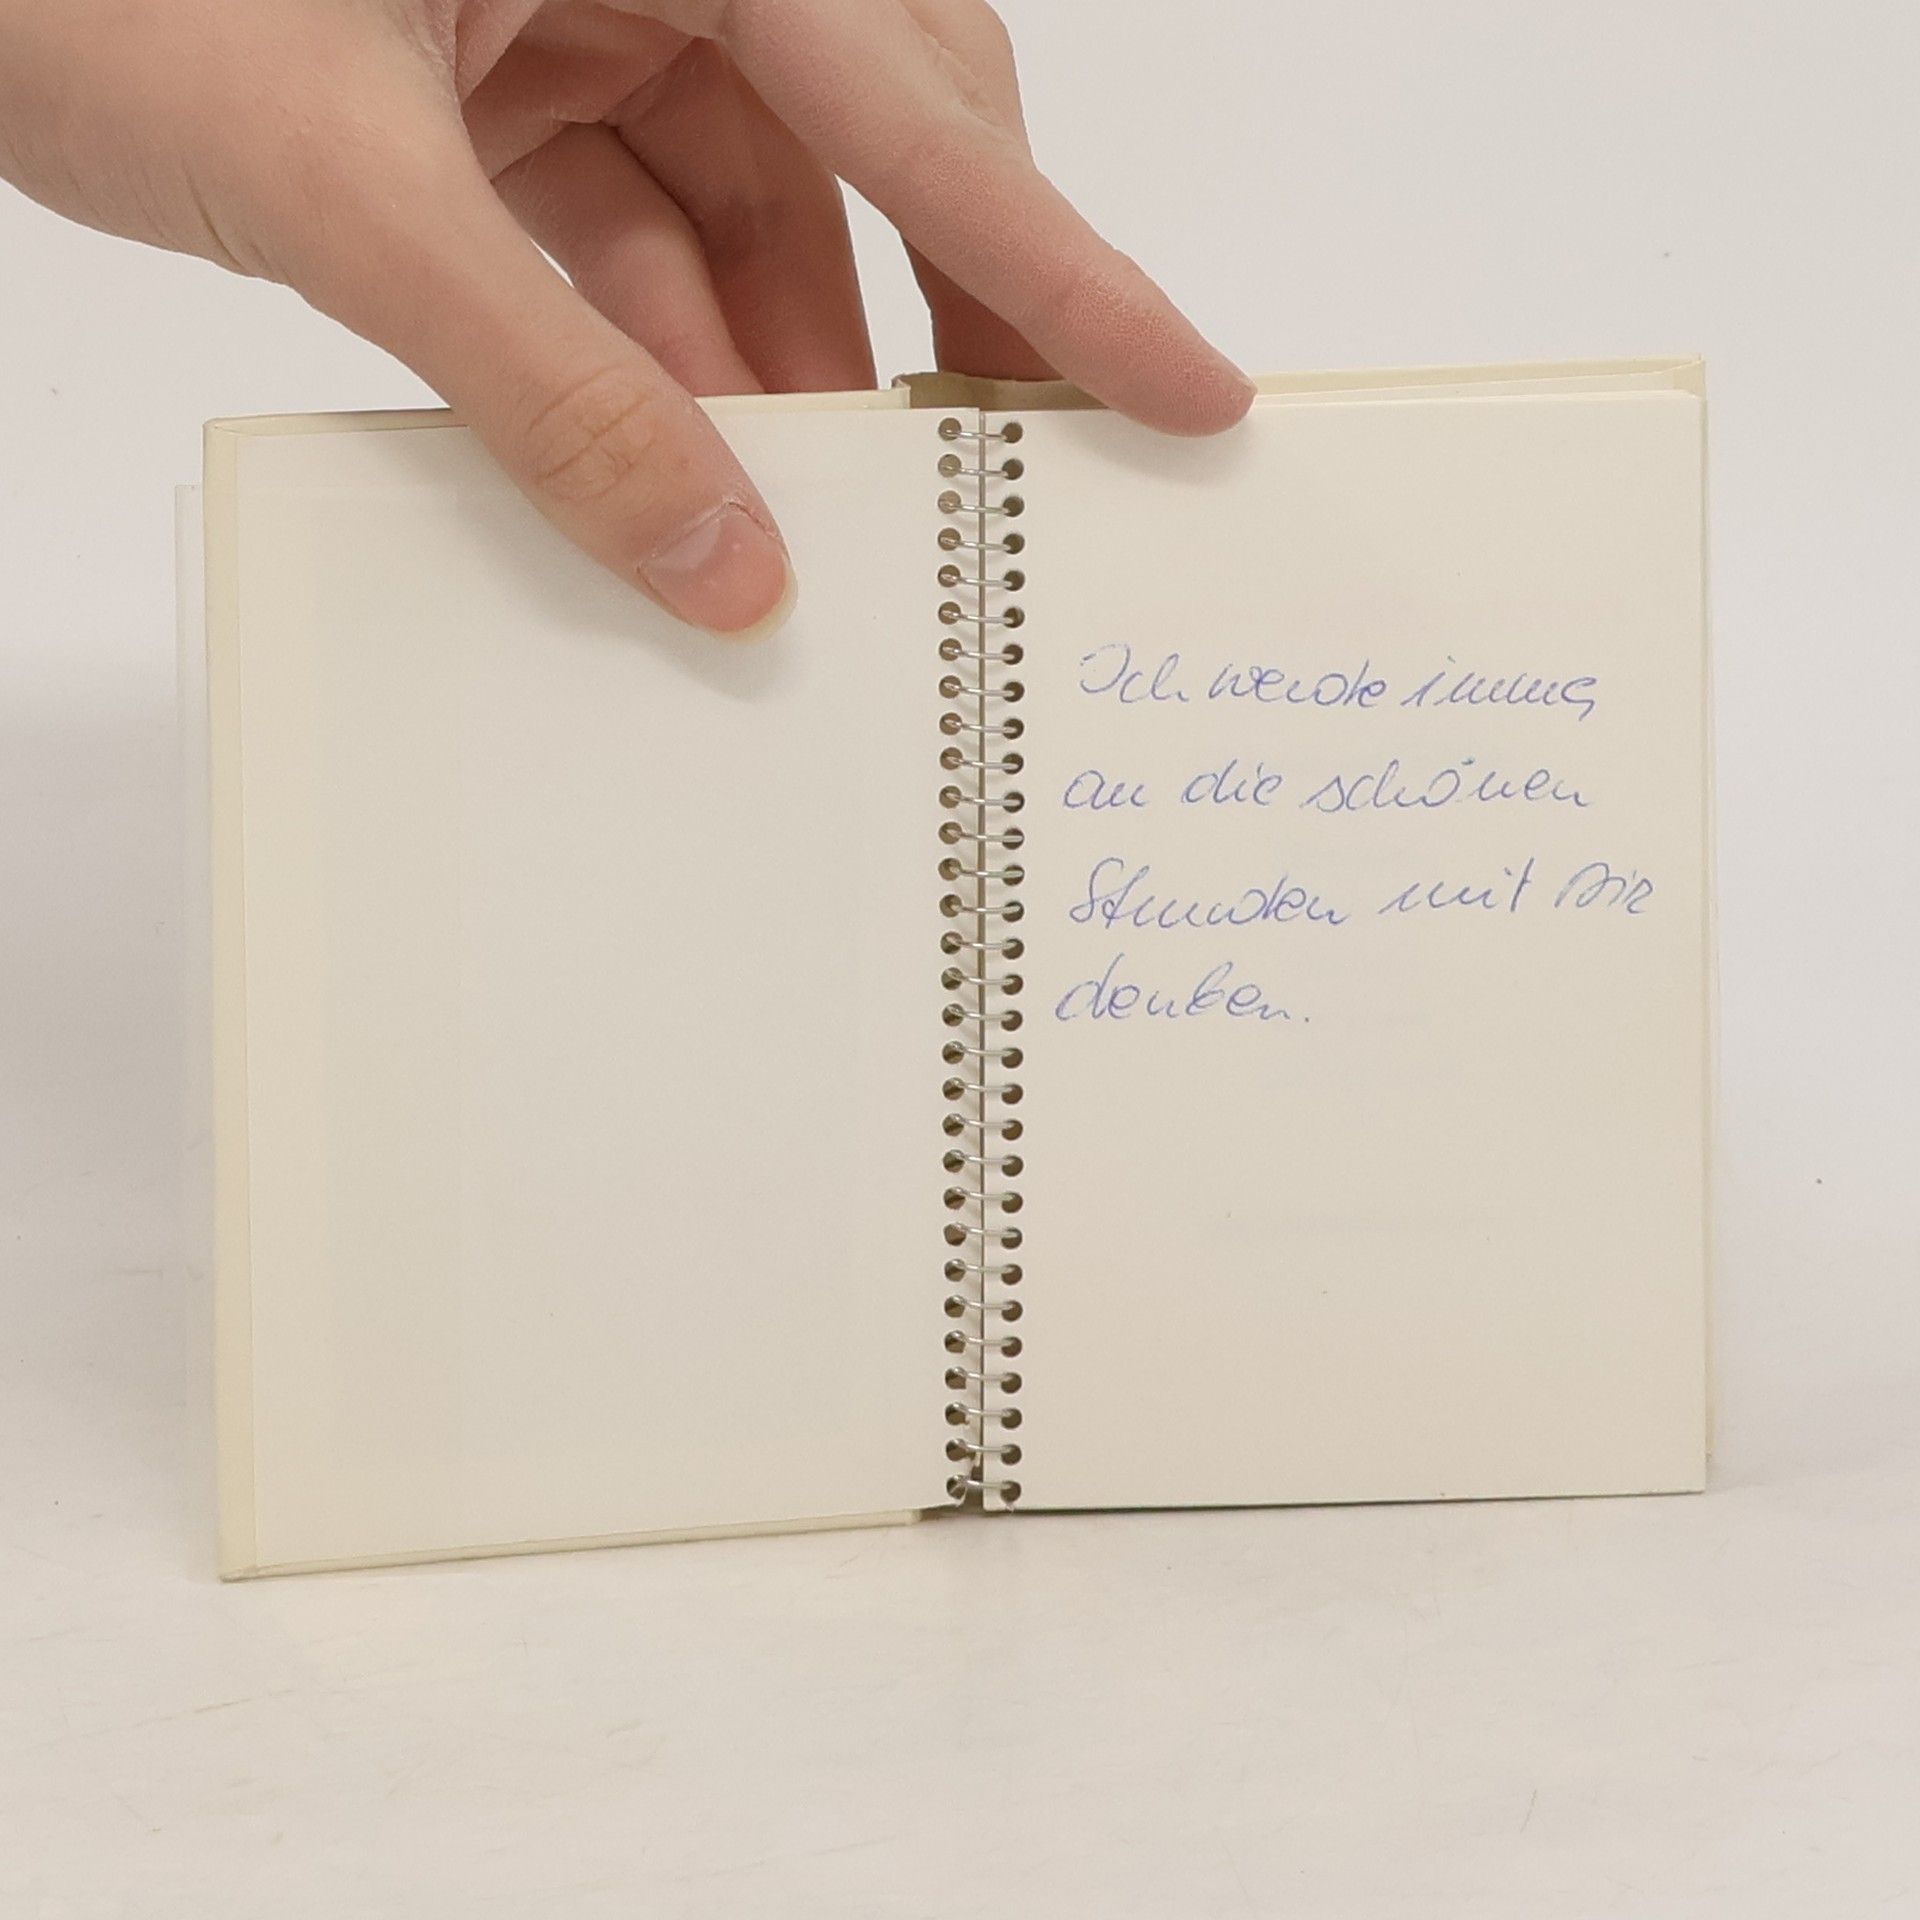 Ich werde immer
an die schönen
Stunden mit Dir
denken.